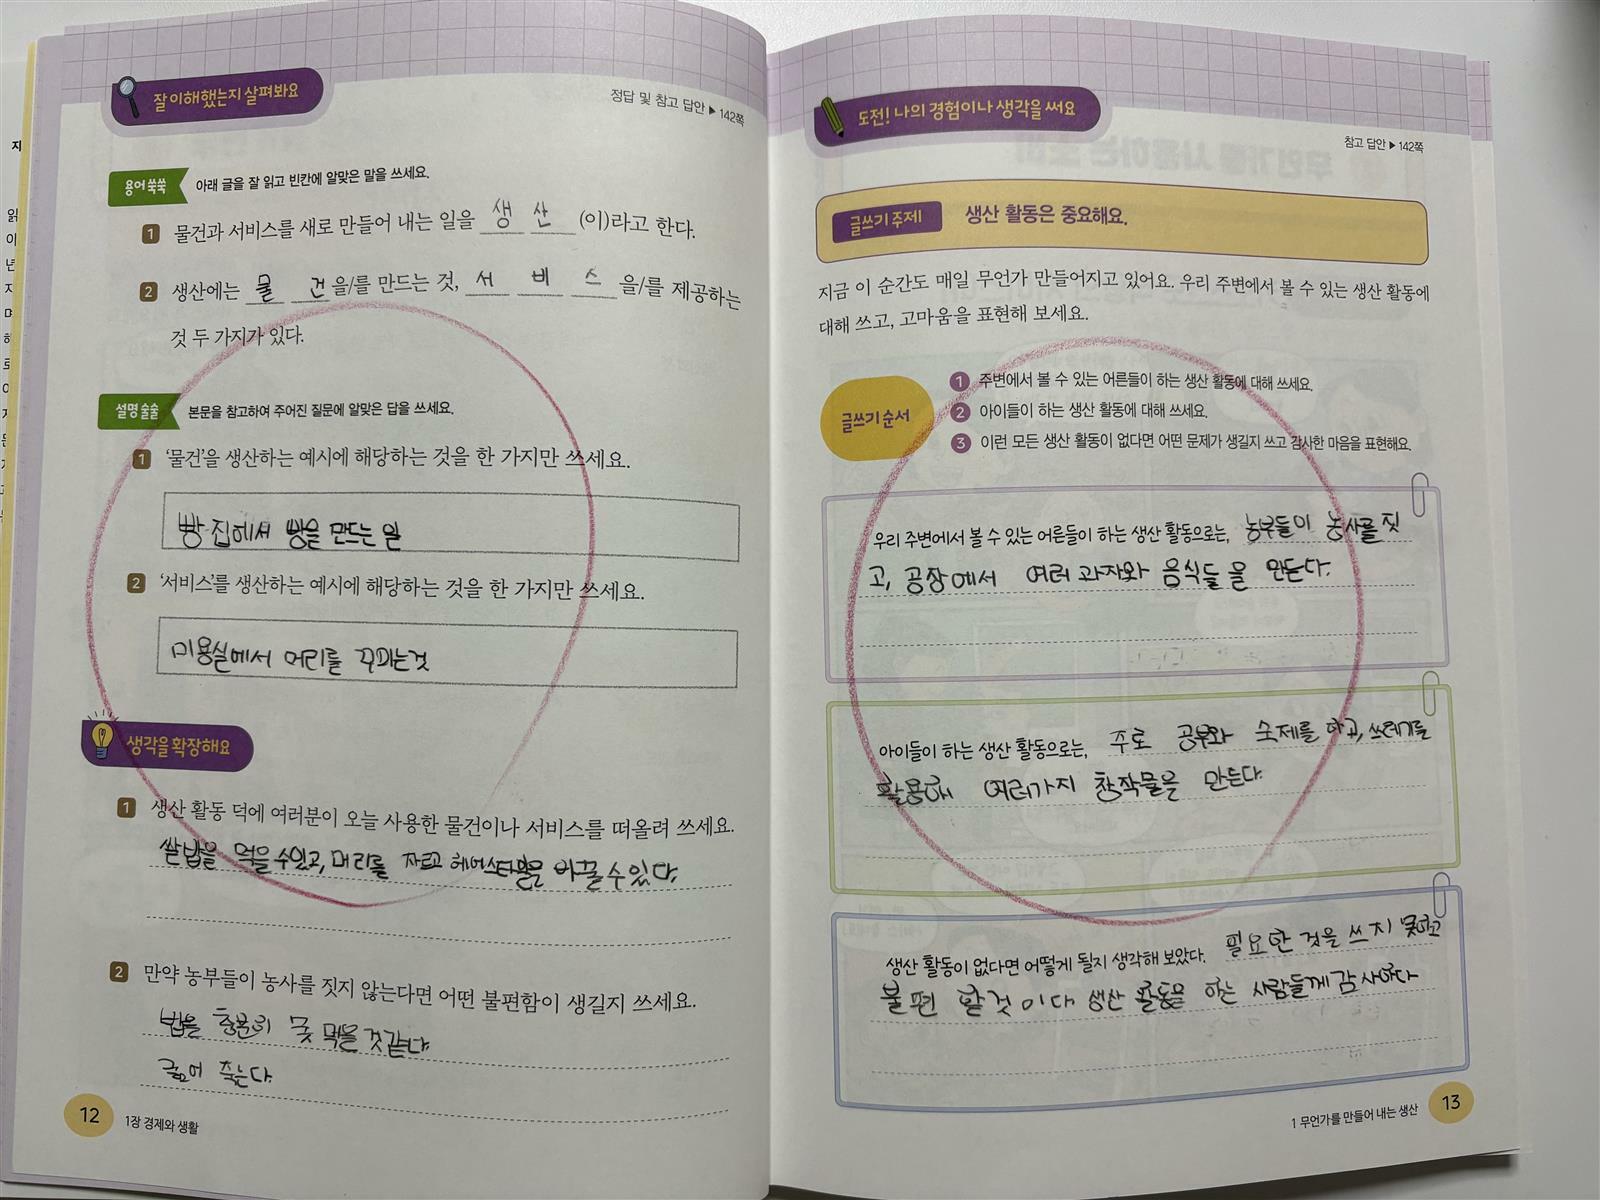 잘 이해했는지 살펴봐요
정답 및 참고 답안 ▶ 142쪽
용어 쑥쑥 아래 글을 잘 읽고 빈칸에 알맞은 말을 쓰세요.
1 물건과 서비스를 새로 만들어 내는 일을 생 산 (이)라고 한다.
2 생산에는 물 건 을/를 만드는 것, 서 비 스 을/를 제공하는
것 두 가지가 있다.
설명 술술 본문을 참고하여 주어진 질문에 알맞은 답을 쓰세요.
1 '물건'을 생산하는 예시에 해당하는 것을 한 가지만 쓰세요.
빵집에서 빵을 만드는 일
2 '서비스'를 생산하는 예시에 해당하는 것을 한 가지만 쓰세요.
미용실에서 머리를 꾸미는것
생각을 확장해요
1 생산 활동 덕에 여러분이 오늘 사용한 물건이나 서비스를 떠올려 쓰세요.
쌀밥을 먹을수있고, 머리를 자르고 헤어스타일을 바꿀수있다.
2 만약 농부들이 농사를 짓지 않는다면 어떤 불편함이 생길지 쓰세요.
밥을 충분히 못 먹을것같다.
굶어 죽는다.
12 1장 경제와 생활
도전! 나의 경험이나 생각을 써요
참고 답안 ▶ 142쪽
글쓰기 주제 생산 활동은 중요해요.
지금 이 순간도 매일 무언가 만들어지고 있어요. 우리 주변에서 볼 수 있는 생산 활동에
대해 쓰고, 고마움을 표현해 보세요.
글쓰기 순서
1 주변에서 볼 수 있는 어른들이 하는 생산 활동에 대해 쓰세요.
2 아이들이 하는 생산 활동에 대해 쓰세요.
3 이런 모든 생산 활동이 없다면 어떤 문제가 생길지 쓰고 감사한 마음을 표현해요.
우리 주변에서 볼 수 있는 어른들이 하는 생산 활동으로는, 농부들이 농사를 짓
고, 공장에서 여러 과자와 음식들을 만든다.
아이들이 하는 생산 활동으로는, 주로 공부와 숙제를 하고, 쓰레기를
활용해 여러가지 창작물을 만든다.
생산 활동이 없다면 어떻게 될지 생각해 보았다. 필요한 것을 쓰지 못하고
불편 할것 이다 생산 활동을 하는 사람들께 감사하다
1 무언가를 만들어 내는 생산 13